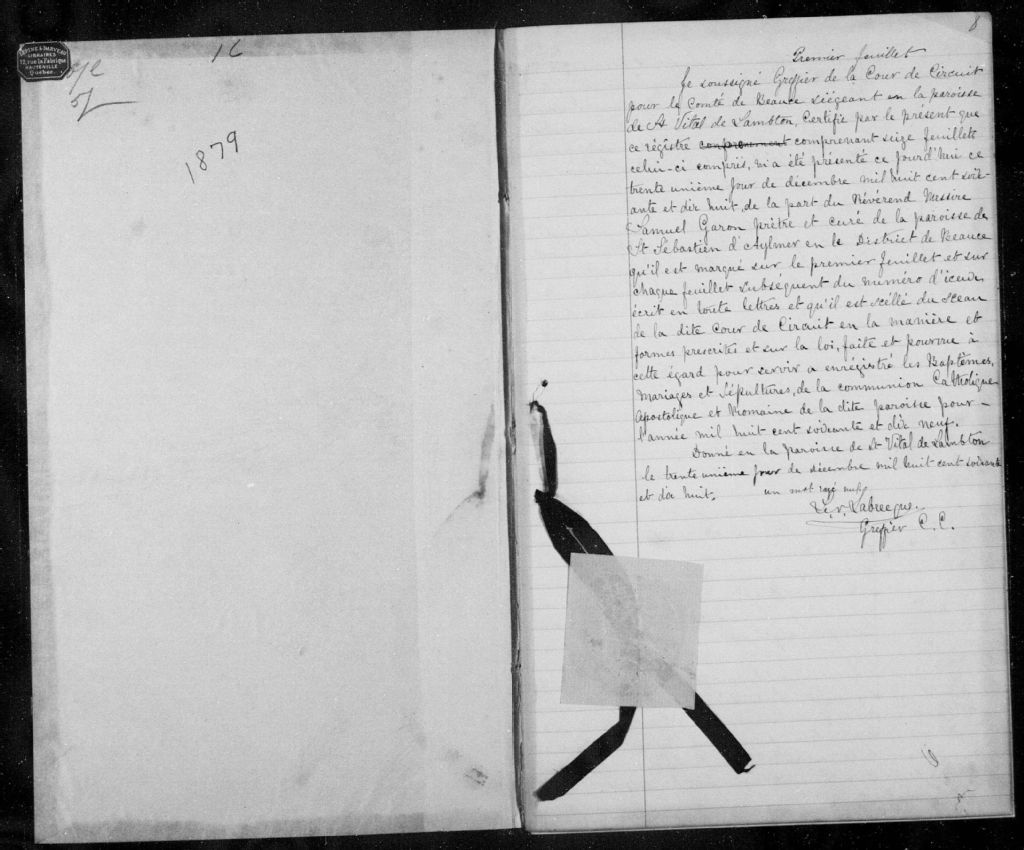 LÉPINE & DARVEAU
LIBRAIRES
12, rue la Fabrique
HAUTE-VILLE
Quebec.
1879
8
Premier feuillet
Je soussigné Greffier de la Cour de Circuit
pour le Comté de Beauce siégeant en la paroisse
de St Vital de Lambton, Certifie par le présent que
ce régistre comprenant seize feuillets
celui-ci compris, m'a été présenté ce jourd'hui ce
trente unième jour de décembre mil huit cent soix-
ante et dix huit, de la part du Révérend Messire
Samuel Garon prêtre et curé de la paroisse de
St Sébastien d'Aylmer en le District de Beauce
qu'il est marqué sur le premier feuillet et sur
chaque feuillet subséquent du numéro d'iceux
écrit en toute lettres et qu'il est scéllé du sceau
de la dite Cour de Circuit en la manière et
formes prescrites et sur la loi, faite et pourvue à
cette égard pour servir a enrégistré les Baptêmes,
Mariages et Sépultures, de la communion Catholique
Apostolique et Romaine de la dite paroisse pour -
l'année mil huit cent soixante et dix neuf.
Donné en la paroisse de St Vital de Lambton
le trente unième jour de décembre mil huit cent soixante
et dix huit. un mot rayé nul
Labrecque.
Greffier C. C.